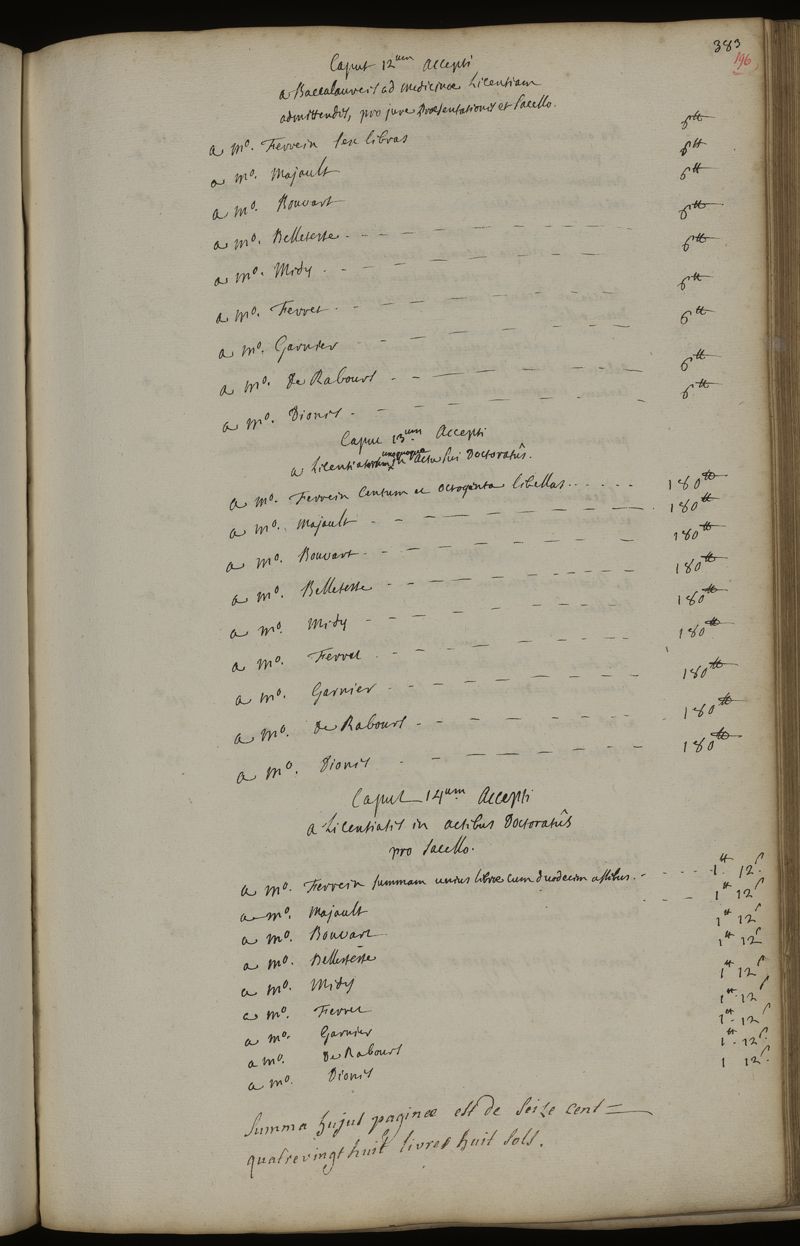 383
196
Caput 12um accepti
a Baccalaureis ad medicinæ Licentiam
admittendis, pro jure Præsentationis et Sacello.
a mo. Ferrein sex libras 6tt
a mo. Majault 6tt
a mo. Bouvart 6tt
a mo. Belleteste - - - - - - - 6tt
a mo. Midy - - - - - - - 6tt
a mo. Ferret - - - - - - - 6tt
a mo. Garnier - - - - - - - 6tt
a mo. De Rabours - - - - - - - 6tt
a mo. Dionis - - - - - - - 6tt
Caput 13um Accepti
a Licentiatorum unoquoque in actu sui Doctoratûs.
a mo. Ferrein Centum et octoginta libellas . . . . . . 180tt
a mo. Majault - - - - - - - 180tt
a mo. Bouvart - - - - - - - 180tt
a mo. Belleteste - - - - - - - 180tt
a mo. Midy - - - - - - - 180tt
a mo. Ferret - - - - - - - 180tt
a mo. Garnier - - - - - - - 180tt
a mo. De Rabours - - - - - - - 180tt
a mo. Dionis - - - - - - - 180tt
Caput 14um Accepti
a Licentiatis in actibus Doctoratûs
pro Sacello.
a mo. Ferrein summam unius libræ cum duodecim assibus. - - - - 1tt 12s
a mo. Majault - - - 1tt 12s
a mo. Bouvart 1tt 12s
a mo. Belleteste 1tt 12s
a mo. Midy 1tt 12s
a mo. Ferret 1tt 12s
a mo. Garnier 1tt 12s
a mo. De Rabours 1tt 12s
a mo. Dionis 1 12s
Summa hujus paginæ est de seize cent =
quatrevingt huit livres huit sols.